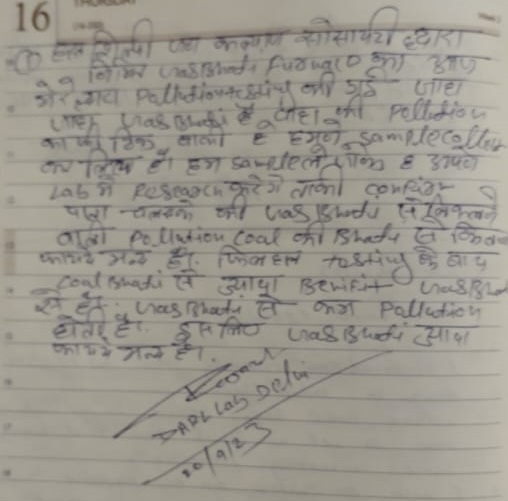 16 THURSDAY
① हस्त शिल्पी जन कल्याण सोसायटी द्वारा
निर्मित Gas Bhadi Furnace का आज
मेरे द्वारा Pollution testing की गई जहा
जहा Gas Bhadi है वहा की Pollution
का की ठिक वाली है हमने sample collect
कर लिया है। हम sample को अपने
Lab में Research करेंगे ताकी confirm
पता चलसके की Gas Bhadi से निकलने
वाली Pollution Coal की Bhadi से कितना
फायदे मन्द है। फिलहाल testing के बाद
Coal Bhadi से ज्यादा Benifit Gas Bhadi
से है। Gas Bhadi से कम Pallution
होती है। इसलिए Gas Bhadi ज्यादा
फायदे मन्द है।
Lab Delhi
20/9/23